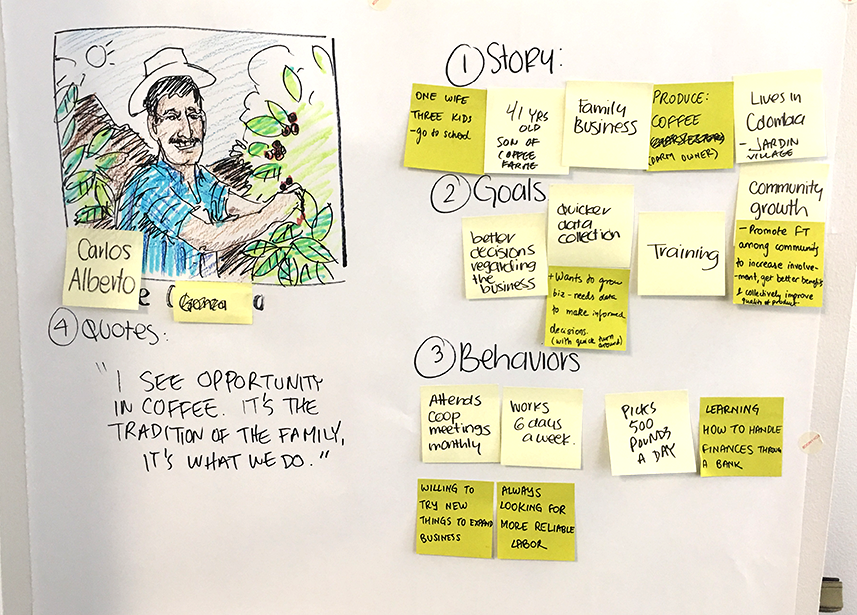 Carlos
Alberto
④ QUOTES:
"I SEE OPPORTUNITY
IN COFFEE. IT'S THE
TRADITION OF THE FAMILY,
IT'S WHAT WE DO."
① STORY:
ONE WIFE
THREE KIDS
-go to school
41 YRS
OLD
SON OF
COFFEE
FARME
Family
Business
PRODUCE:
COFFEE
(FARM OWNER)
Lives in
Colombia
- JARDIN
VILLAGE
② Goals
better
decisions
regarding
the
business
quicker
data
collection
+ Wants to grow
biz - needs data
to make informed
decisions.
(with quick turn
around)
Training
Community
growth
- Promote FT
among community
to increase involve-
ment, get better benefits
& collectively improve
quality of product
③ Behaviors
Attends
coop
meetings
monthly
WORKS
6 days
a week.
PICKS
500
POUNDS
A DAY
LEARNING
HOW TO HANDLE
FINANCES THROUGH
A BANK
WILLING TO
TRY NEW
THINGS TO EXPAND
BUSINESS
ALWAYS
LOOKING FOR
MORE RELIABLE
LABOR